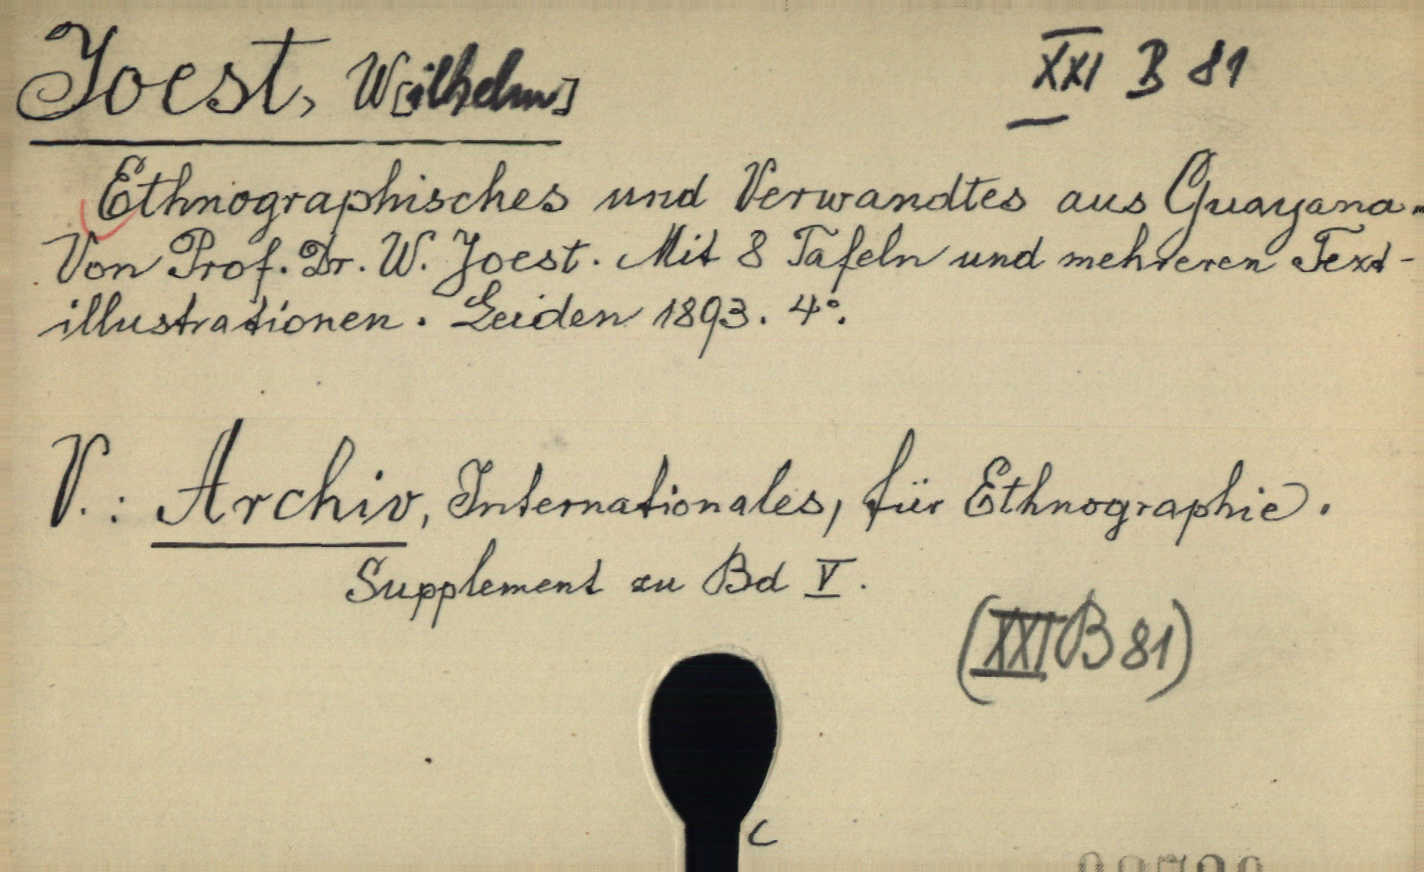 Joest, W[ilhelm]
XXI B 81
Ethnographisches und Verwandtes aus Guayana.
Von Prof. Dr. W. Joest. Mit 8 Tafeln und mehreren Text-
illustrationen. Leiden 1893. 4°.
V.: Archiv, Internationales, für Ethnographie.
Supplement zu Bd V.
(XXI B 81)
C